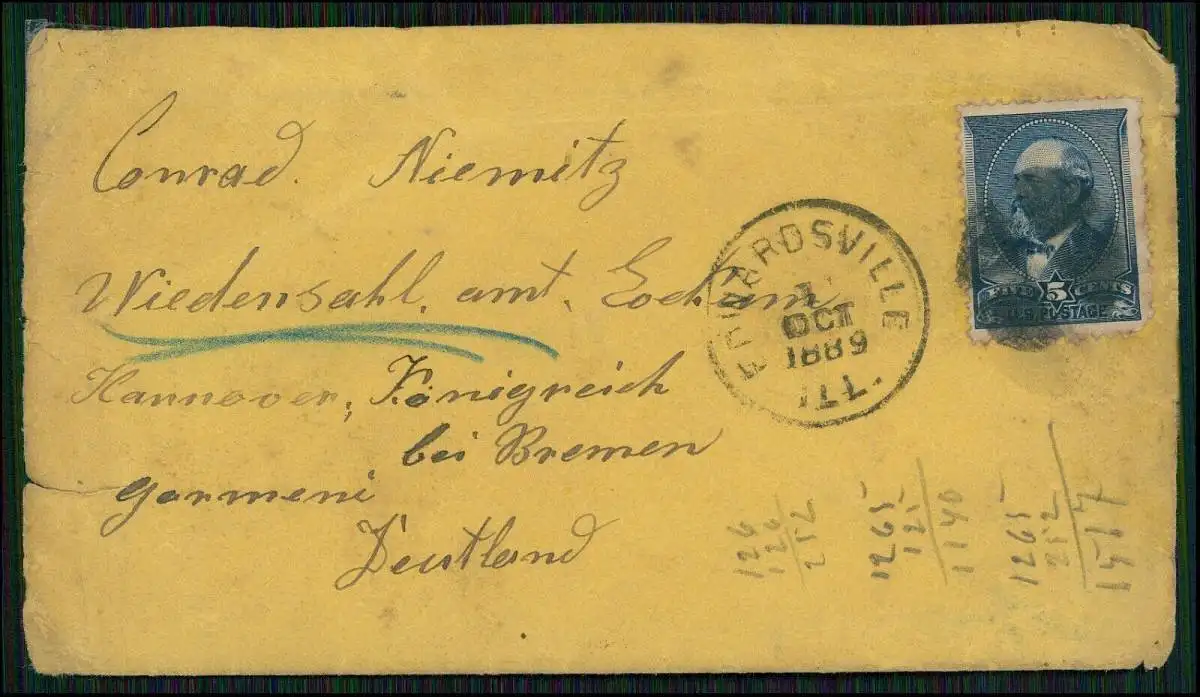 Conrad. Niemitz
Wiedensahl, amt. Lockum
Hannover, Königreich
bei Bremen
Germeni
Deutland
EDWARDSVILLE
1
OCT
1889
ILL.
FIVE 5 CENTS
U.S. POSTAGE
126
126
252
1265
125
1140
1265
252
1517